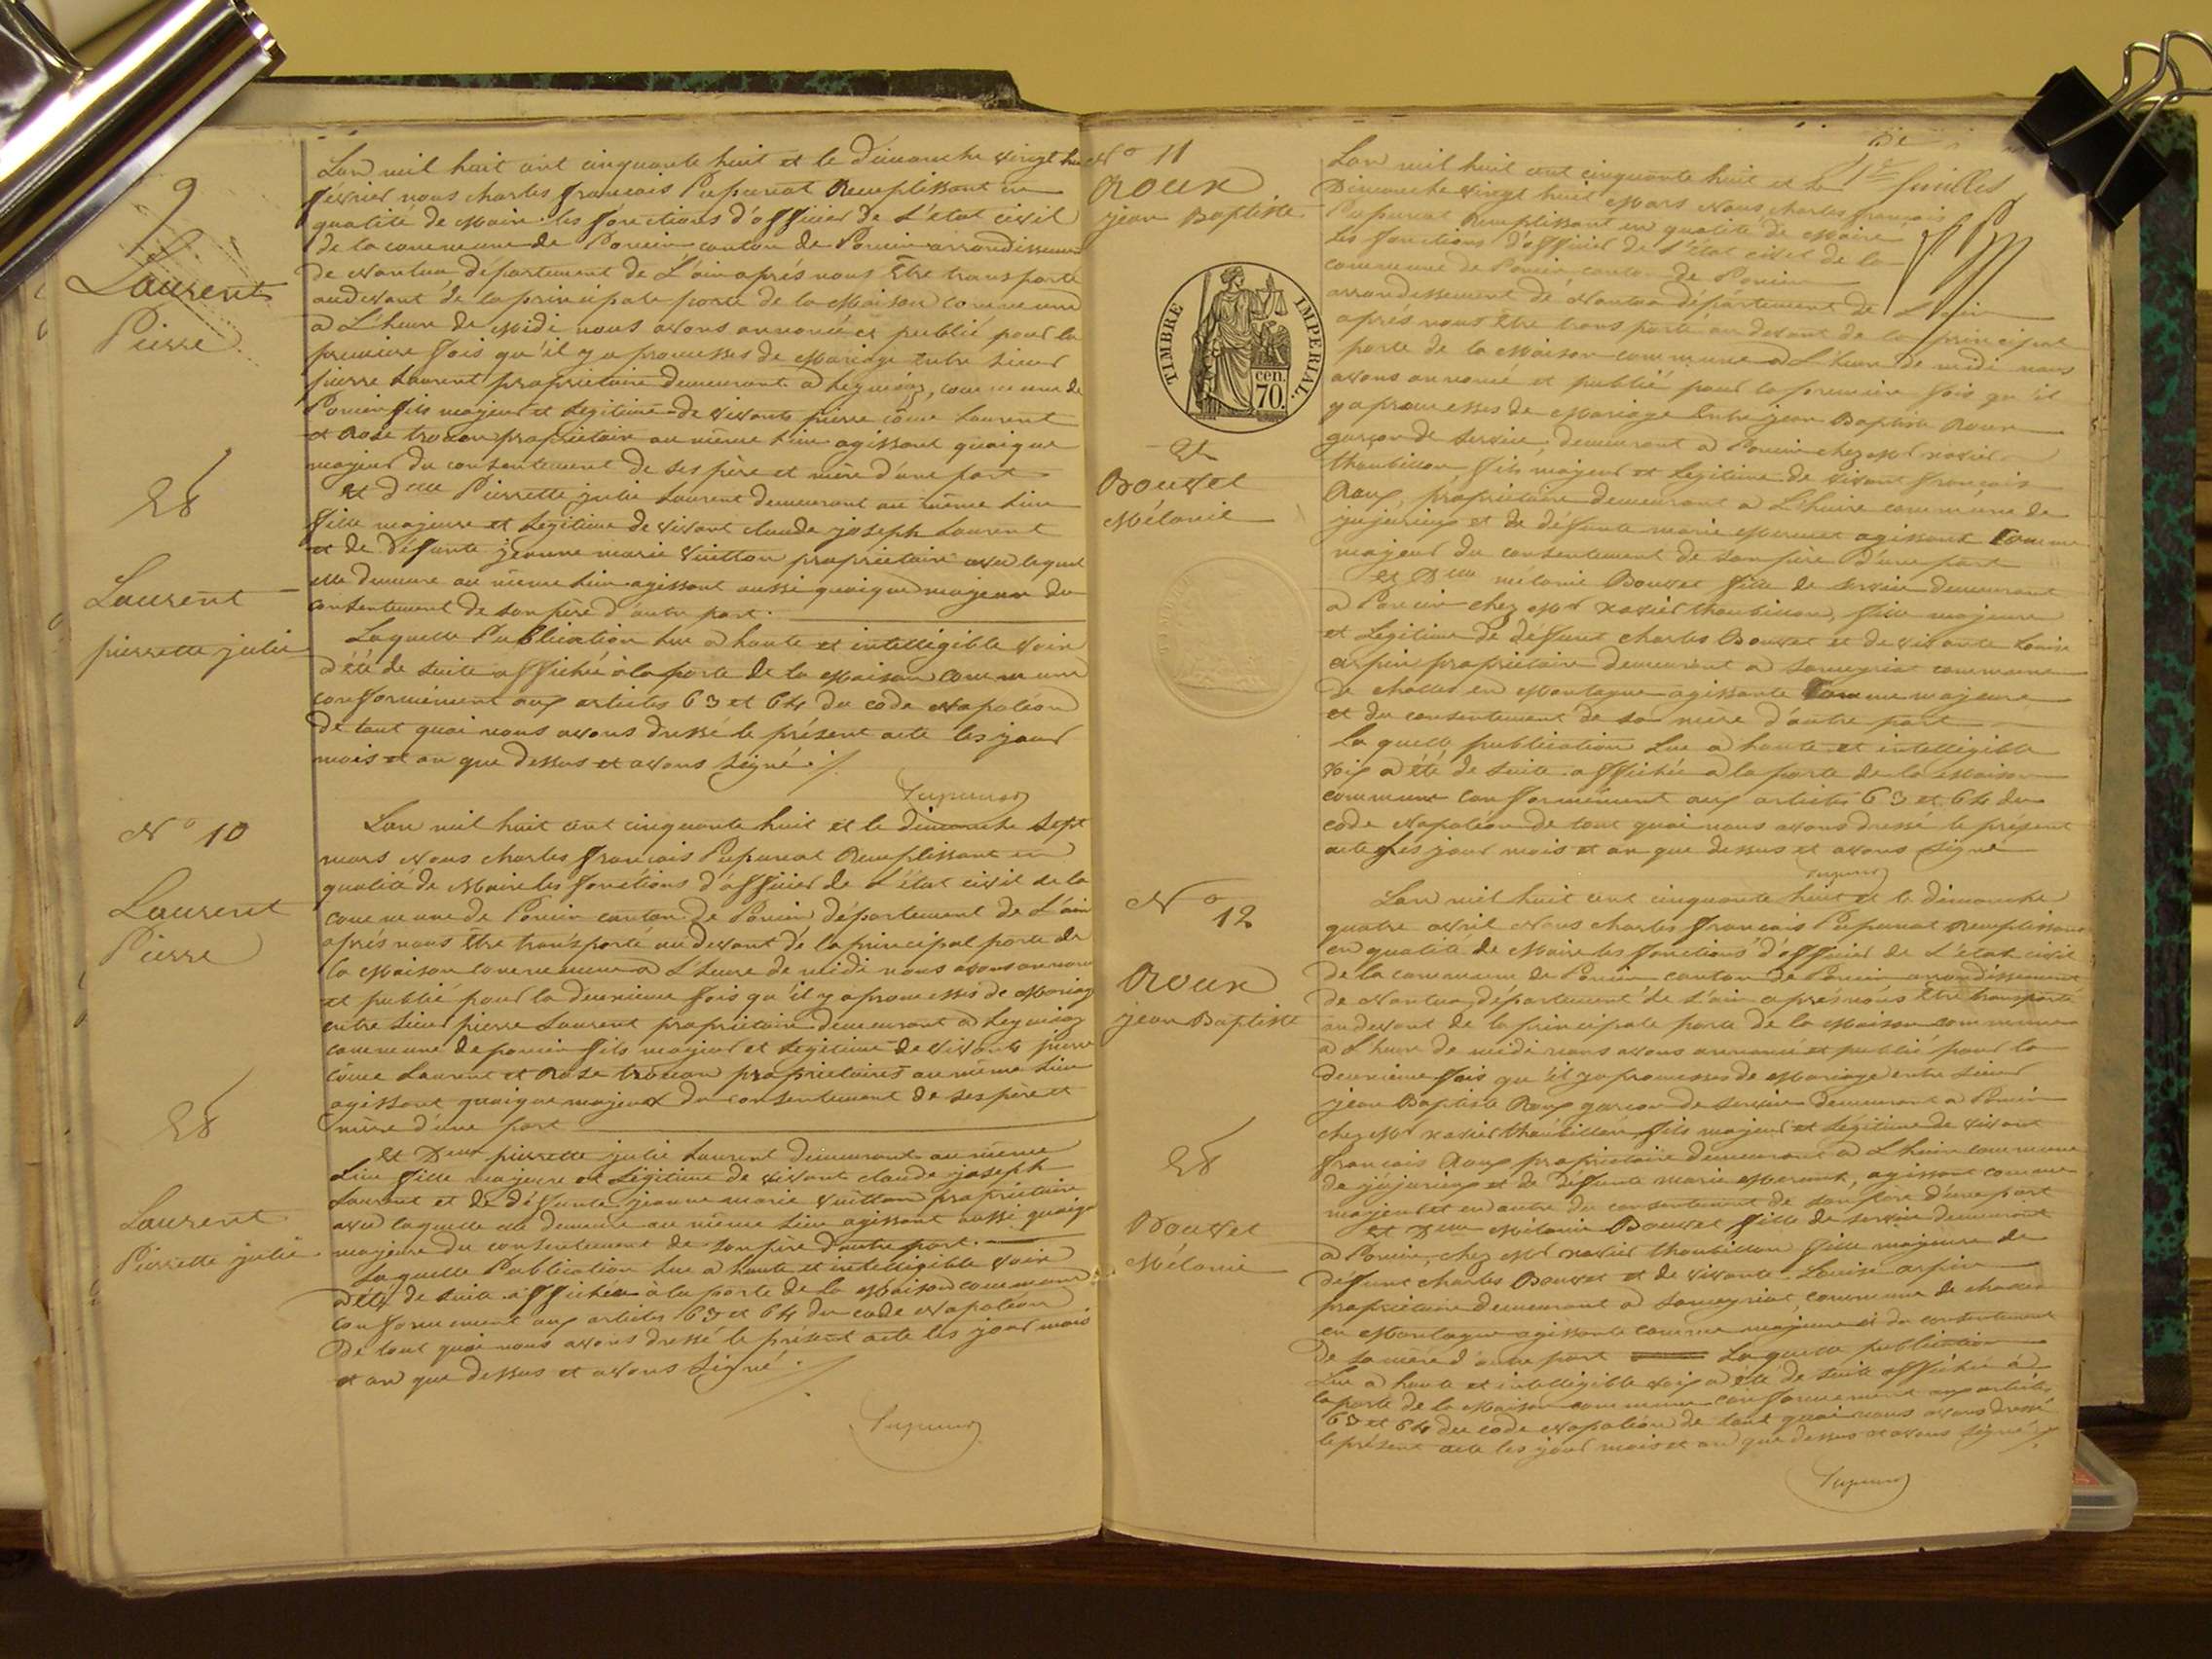 9
Laurent
Pierre
Et
Laurent
pierrette julie
L'an mil huit cent cinquante huit et le dimanche vingt huit
février nous charles françois Pupunat Remplissant en
qualité de Maire les fonctions d'officier de L'état civil
de la commune de Poncin canton de Poncin arrondissement
de Nantua département de L'ain après nous Être transporté
audevant de la principale porte de la Maison commune
a L'heure de Midi nous avons annoncé et publié pour la
premiere fois qu'il y a promesses de Mariage entre sieur
pierre Laurent propriétaire demeurant a Leymiaz, commune de
Poncin fils majeur et Légitime de vivants pierre côme Laurent
et Rose propriétaire au même Lieu agissant quoique
majeur du consentement de ses père et mère d'une part
Et delle Pierrette julie Laurent demeurant au même Lieu
fille majeure et Légitime de vivant claude joseph Laurent
et de défunte jeanne marie Vuitton propriétaire avec lequel
elle demeure au même Lieu agissant aussi quoique majeure du
consentement de son père d'autre part.
Laquelle Publication Lue a haute et intelligible Voix
a été de suite affichée à la porte de la Maison commune
conformément aux articles 63 et 64 du code Napoléon
de tout quoi nous avons dressé le présent acte les jour
mois et an que dessus et avons signé ./.
Pupunat
N° 10
Laurent
Pierre
Et
Laurent
Pierrette julie
L'an mil huit cent cinquante huit et le dimanche Sept
mars Nous charles françois Pupunat Remplissant en
qualité de Maire les fonctions d'officier de L'état civil de la
commune de Poncin canton de Poncin département de L'ain
après nous Être transporté audevant de la principal porte de
la Maison commune a L'heure de midi nous avons annoncé
et publié pour la deuxieme fois qu'il y a promesses de Mariage
entre sieur pierre Laurent propriétaire demeurant a Leymiaz
commune de poncin fils majeur et Légitime de vivants pierre
côme Laurent et Rose propriétaires au même Lieu
agissant quoique majeur du consentement de ses père et
mère d'une part
et Delle pierrette julie Laurent demeurant au même
Lieu fille majeure et Légitime de vivant claude joseph
Laurent et de défunte jeanne marie Vuitton propriétaire
avec laquelle elle demeure au même Lieu agissant aussi quoique
majeure du consentement de son père d'autre part.
Laquelle Publication Lue a haute et intelligible Voix
a été de suite affichée à la porte de la Maison commune
conformement aux articles 63 et 64 du code Napoléon
De tout quoi nous avons dressé le présent acte les jour mois
et an que dessus et avons signé ./.
Pupunat
N° 11
Roux
jean Baptiste
TIMBRE IMPERIAL.
cen.
70.
Et
Bouvet
Mélanie
feuillet
L'an mil huit cent cinquante huit et le
Dimanche vingt huit Mars Nous charles françois
Pupunat Remplissant en qualité de Maire
Les fonctions d'officier de L'état civil de la
commune de Poncin canton de Poncin
arrondissement de Nantua département de L'ain
après nous Être transporté au devant de la principal
porte de la Maison commune a L'heure de midi nous
avons annoncé et publié pour la premiere fois qu'il
y a promesses de Mariage Entre jean Baptiste Roux
garçon de service, demeurant a Poncin chez Mr xavier
Thoubillon fils majeur et Légitime de vivant françois
Roux, propriétaire demeurant a L'huire commune de
jujurieux et de défunte marie Mermet agissant Comme
majeur du consentement de son père d'une part
et Delle mélanie Bouvet fille de service demeurant
a Poncin chez Mr xavier Thoubillon, fille majeure
et Légitime de défunt charles Bouvet et de vivante Louise
arpin propriétaire demeurant a Sameyriat commune
de challes en Montagne agissante Comme majeure
et du consentement de sa mère d'autre part
La quelle publication Lue a haute et intelligible
voix a été de suite affichée a la porte de la Maison
commune conformément aux articles 63 et 64 du
code Napoléon de tout quoi nous avons dressé le présent
acte les jour mois et an que dessus et avons signé
Pupunat
N° 12
Roux
jean Baptiste
Et
Bouvet
Mélanie
L'an mil huit cent cinquante huit et le dimanche
quatre avril Nous charles françois Pupunat Remplissant
en qualité de Maire les fonctions d'officier de L'état civil
de la commune de Poncin canton de Poncin arrondissement
de Nantua département de L'ain après nous Être transporté
audevant de la principale porte de la Maison commune
a L'heure de midi nous avons annoncé et publié pour la
deuxième fois qu'il y a promesses de Mariage entre sieur
jean Baptiste Roux garçon de service demeurant a Poncin
chez Mr xavier Thoubillon fils majeur et Légitime de vivant
françois Roux propriétaire demeurant a L'huire commune
de jujurieux et de défunte marie Mermet, agissant comme
majeur et en outre du consentement de son père d'une part
et Delle Mélanie Bouvet fille de service demeurant
a Poncin, chez Mr xavier Thoubillon fille majeure de
défunt charles Bouvet et de vivante Louise arpin
propriétaire demeurant a Sameyriat, commune de challes
en Montagne agissante comme majeure et du consentement
de sa mère d'autre part Laquelle publication
Lue a haute et intelligible voix a été de suite affichée à
la porte de la Maison commune conformement aux articles
63 et 64 du code Napoléon de tout quoi nous avons dressé
le présent acte les jour mois et an que dessus et avons signé ./.
Pupunat